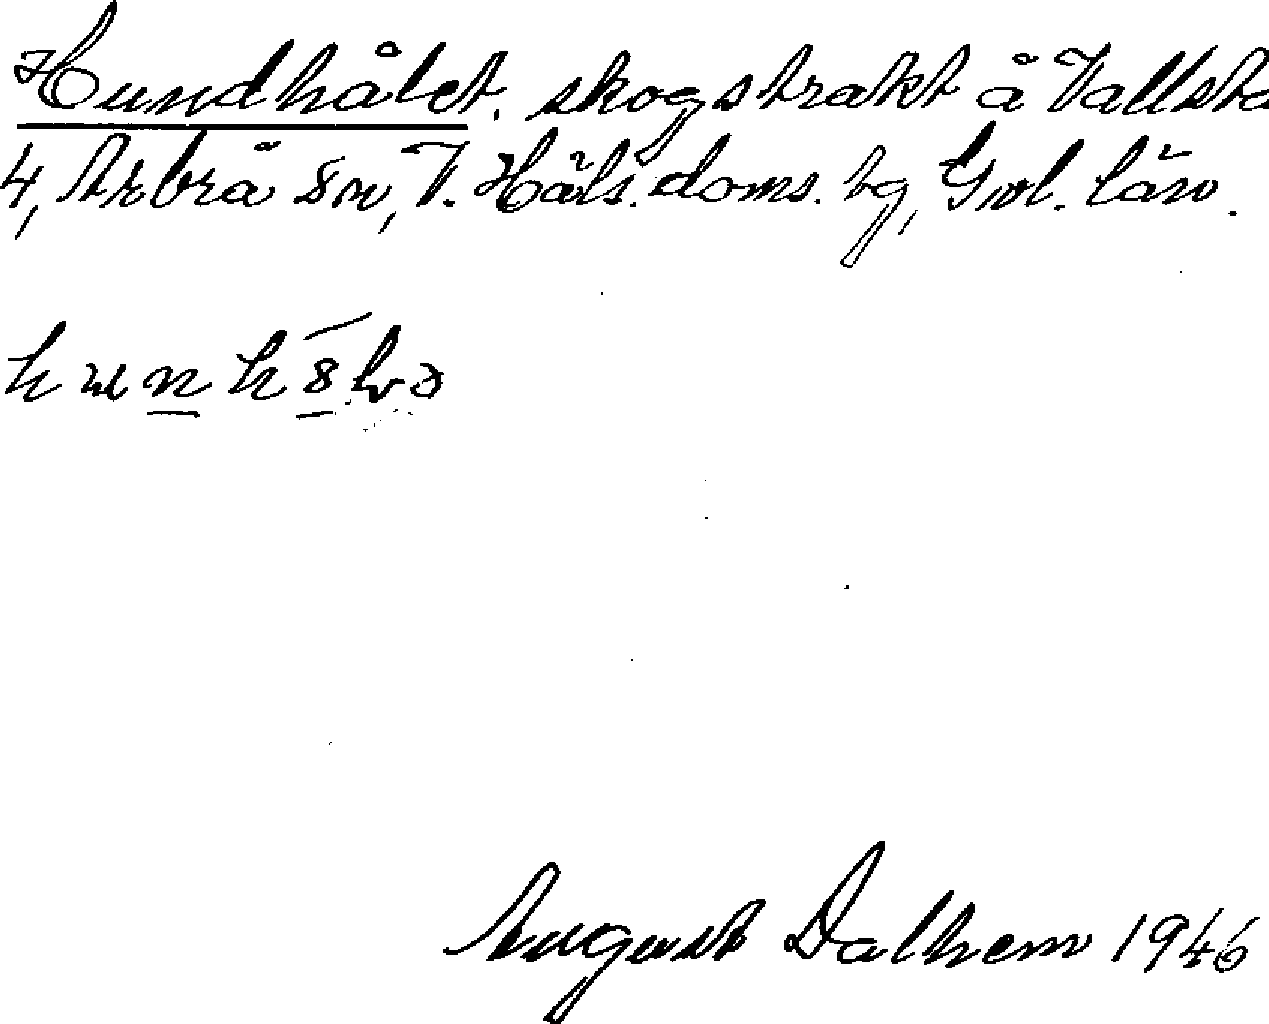 Hundhålet, skogstrakt å Vallsta
4, Arbrå sn, V. Häls. doms. bg, Gvl. län.
August Dalhem 1946